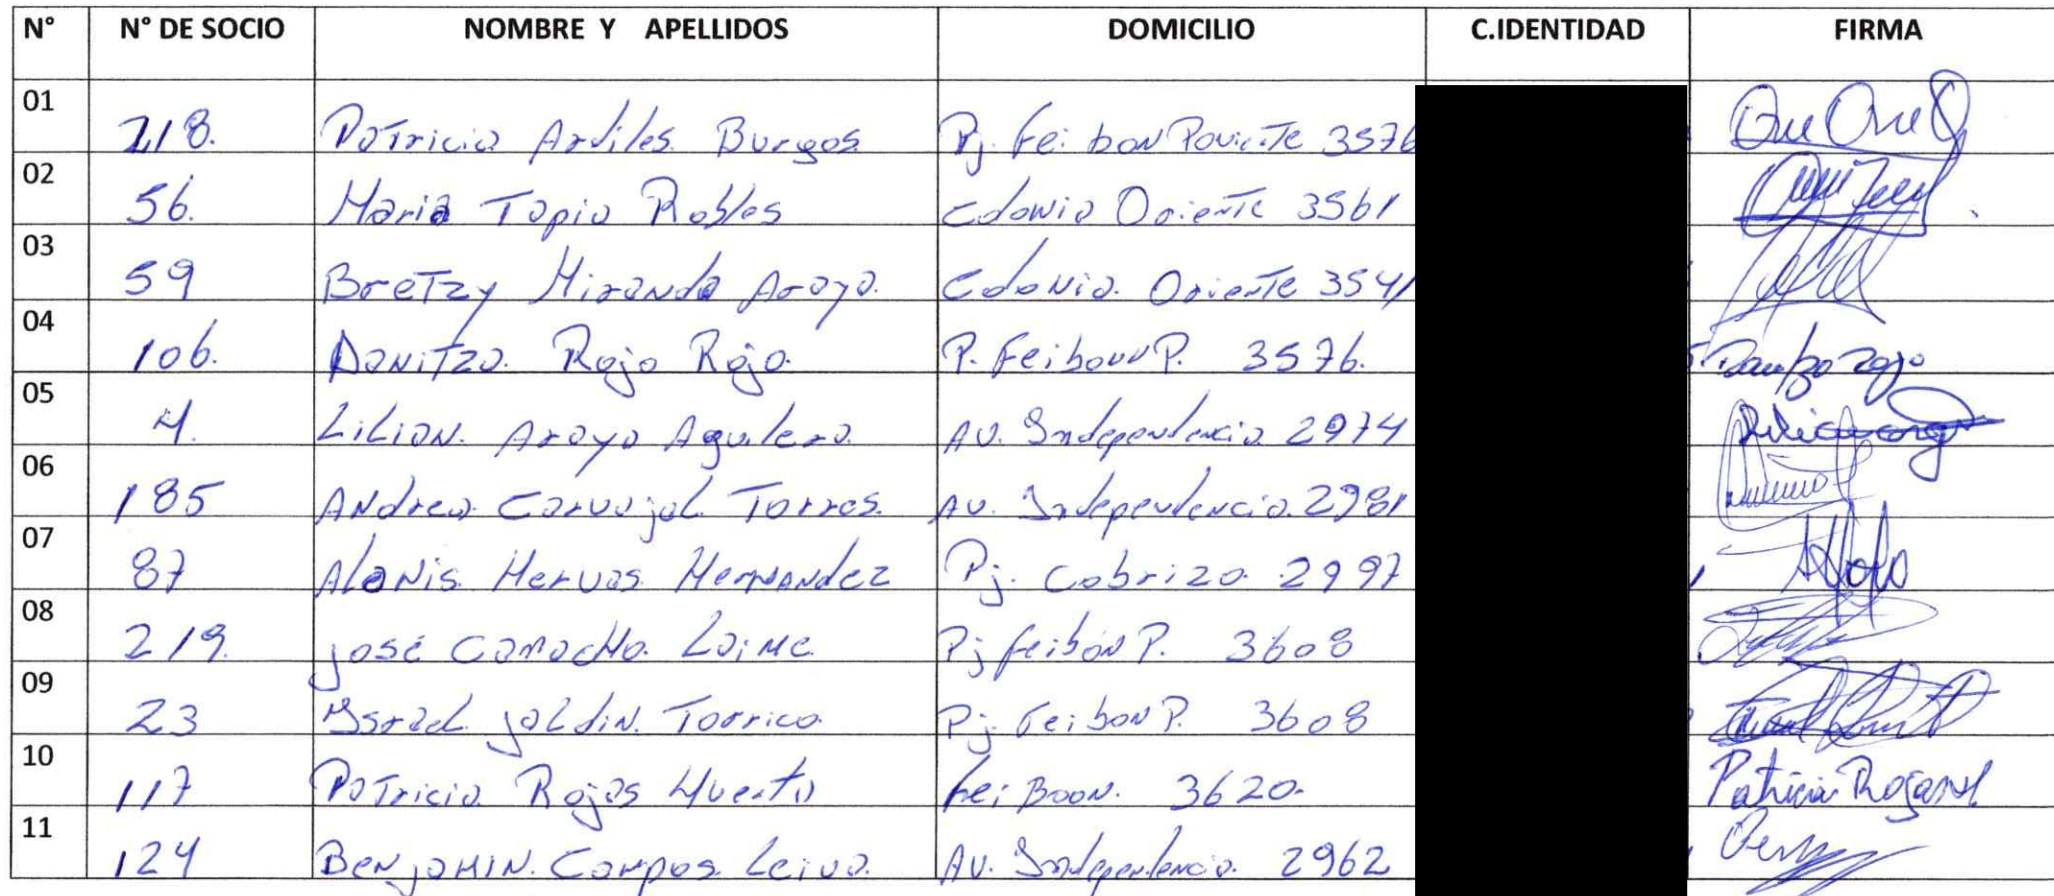 N° N° DE SOCIO NOMBRE Y APELLIDOS DOMICILIO C.IDENTIDAD FIRMA
01 218. Patricia Ardiles Burgos Pj. Feibon Poniente 3576
02 56. Maria Tapia Robles Colonia Oriente 3561
03 59 Bretzy Miranda Araya. Colonia. Oriente 3541
04 106. Danitza. Rojo Rojo. P. Feibonn P. 3576.
05 4. Lilian. Araya Aguilera. AV. Independencia 2974
06 185 Andrea Carvajal Torres. AV. Independencia. 2981
07 87 Alanis Hervas Hernandez Pj. Cobrizo. 2997
08 219. José Camacho. Laime Pj Feibon P. 3608
09 23 Israel Jaldin. Torrico Pj. Feibon P. 3608
10 117 Patricia Rojas Huerta Fei Boon. 3620. Patricia Rojas H
11 124 Benjamin. Campos Leiva. AV. Independencia. 2962